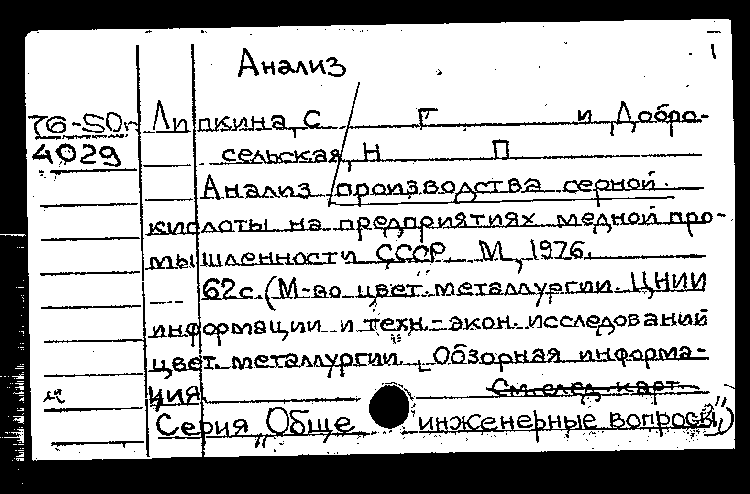 Анализ
I
76-50п Липкина, С Г и Добро-
4029 сельская, Н П
Анализ производства серной
кислоты на предприятиях медной про-
мышленности СССР. М, 1976.
62с. (М-во цвет. металлургии. ЦНИИ
информации и техн.-экон. исследований
цвет. металлургии. Обзорная информа-
ция См. след. карт.
Серия „Обще инженерные вопросы")